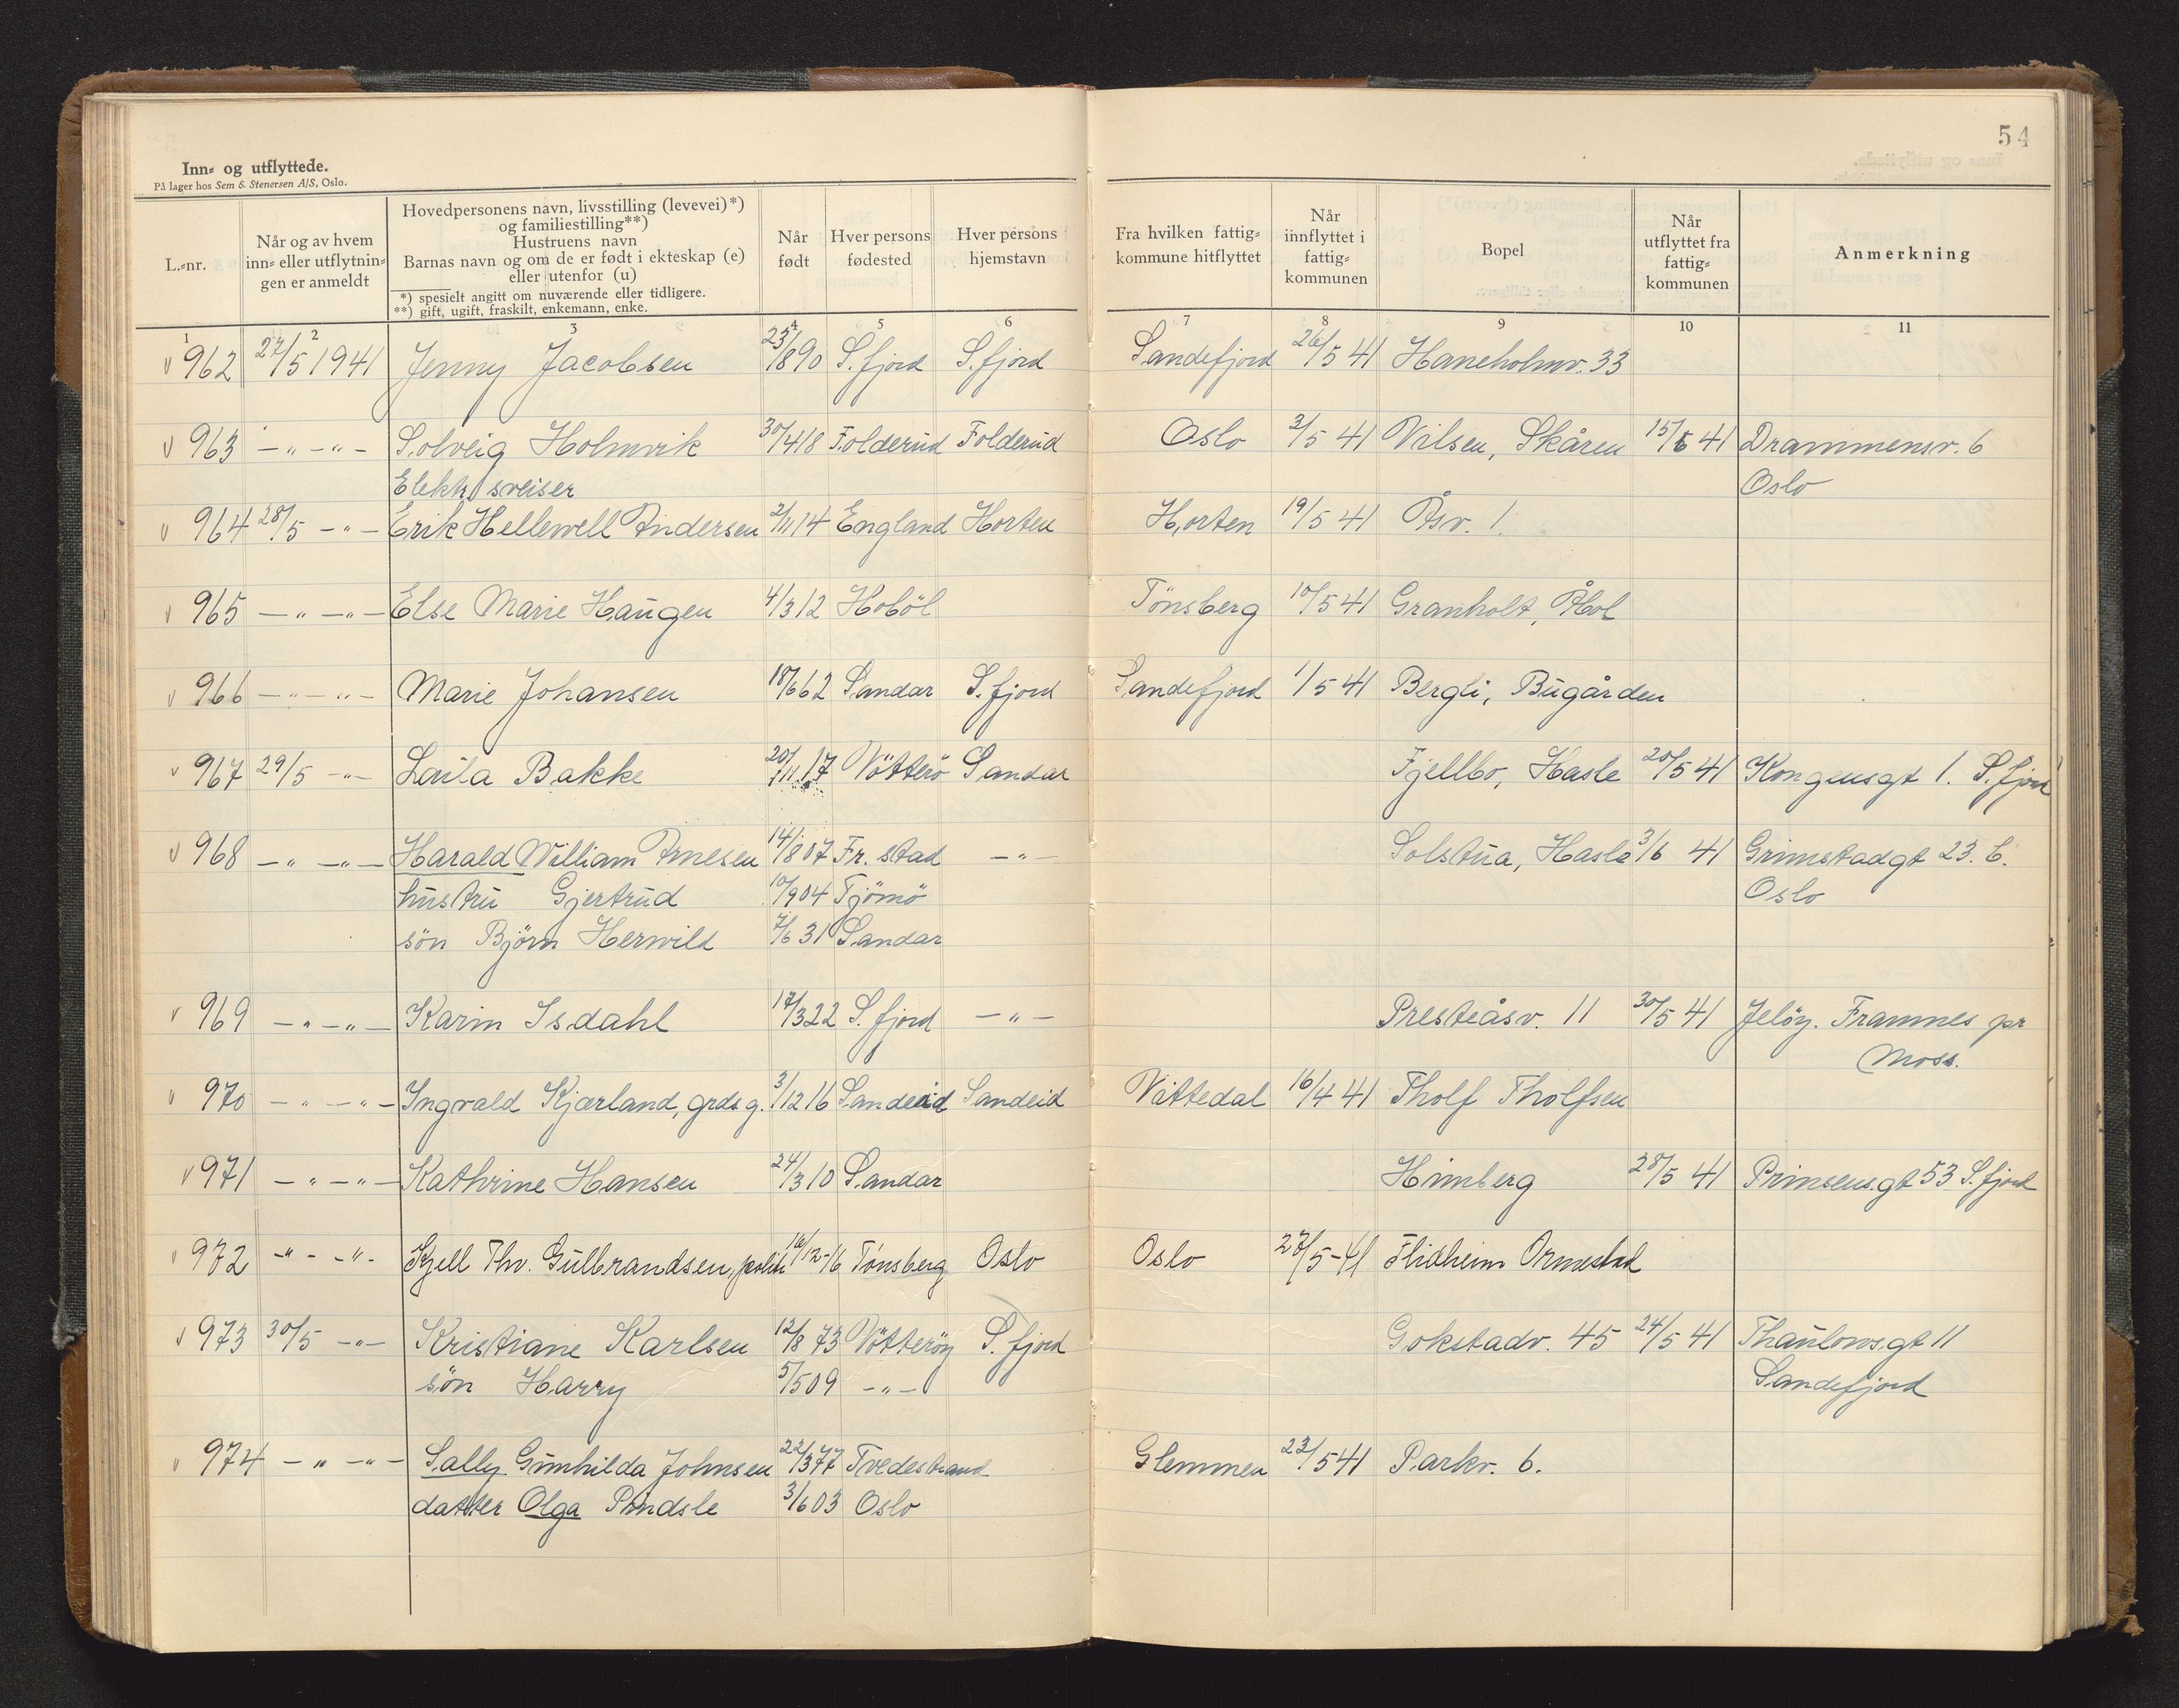 54
Inn- og utflyttede.
På lager hos Sem & Stenersen A/S, Oslo.
L.-nr.
Når og av hvem
inn- eller utflytnin-
gen er anmeldt
Hovedpersonens navn, livsstilling (levevei)*)
og familiestilling**)
Hustruens navn
Barnas navn og om de er født i ekteskap (e)
eller utenfor (u)
*) spesielt angitt om nuværende eller tidligere.
**) gift, ugift, fraskilt, enkemann, enke.
Når
født
Hver persons
fødested
Hver persons
hjemstavn
Fra hvilken fattig-
kommune hitflyttet
Når
innflyttet i
fattig-
kommunen
Bopel
Når
utflyttet fra
fattig-
kommunen
Anmerkning
1 2 3 4 5 6 7 8 9 10 11
v 962 27/5 1941 Jenny Jacobsen 23/1890 S.fjord S.fjord Sandefjord 26/5 41 Haneholmv. 33
v 963 -"-"- Solveig Holmvik 30/418 Folderud Folderud Oslo 3/5 41 Vilsen, Skåren 15/5 41 Drammensv. 6
Elektr. sveiser Oslo
v 964 28/5 -"- Erik Hellewell Andersen 2/1114 England Horten Horten 19/5 41 Åsv. 1.
v 965 -"-"- Else Marie Haugen 4/312 Hobøl Tønsberg 10/5 41 Granholt, Åbol
v 966 -"-"- Marie Johansen 18/662 Sandar S.fjord Sandefjord 1/5 41 Bergli, Bugården
v 967 29/5 -"- Laila Bakke 20/1117 Nötterö Sandar Fjellbo, Hasle 20/5 41 Kongensgt 1. S.fjord
v 968 -"-"- Harald William Arnesen 14/807 Fr.stad -"- Solstua, Hasle 3/6 41 Grimstadgt 23. C.
hustru Gjertrud 10/904 Tjömö Oslo
sön Björn Herwild 7/631 Sandar
v 969 -"-"- Karin Isdahl 17/322 S.fjord -"- Presteåsv. 11 30/5 41 Jelöy. Framnes pr
Moss.
v 970 -"-"- Ingvald Kjærland, grds g. 3/1216 Sandeid Sandeid Vattedal 16/4 41 Tholf Tholfsen
v 971 -"-"- Kathrine Hansen 24/310 Sandar Himberg 28/5 41 Prinsens.gt 53 S.fjord
v 972 -"-"- Kjell Thv. Gulbrandsen, politi 16/12-16 Tönsberg Oslo Oslo 27/5-41 Flidheim Ormestad
v 973 30/5 -"- Kristiane Karlsen 12/873 Nötteröy S.fjord Gokstadv. 45 24/5 41 Thaulowsgt 11
sön Harry 5/509 -"- Sandefjord
v 974 -"-"- Sally Gunhilda Johnsen 22/377 Tvedestrand Glemmen 23/541 Parkv. 6.
datter Olga Pindsle 3/603 Oslo